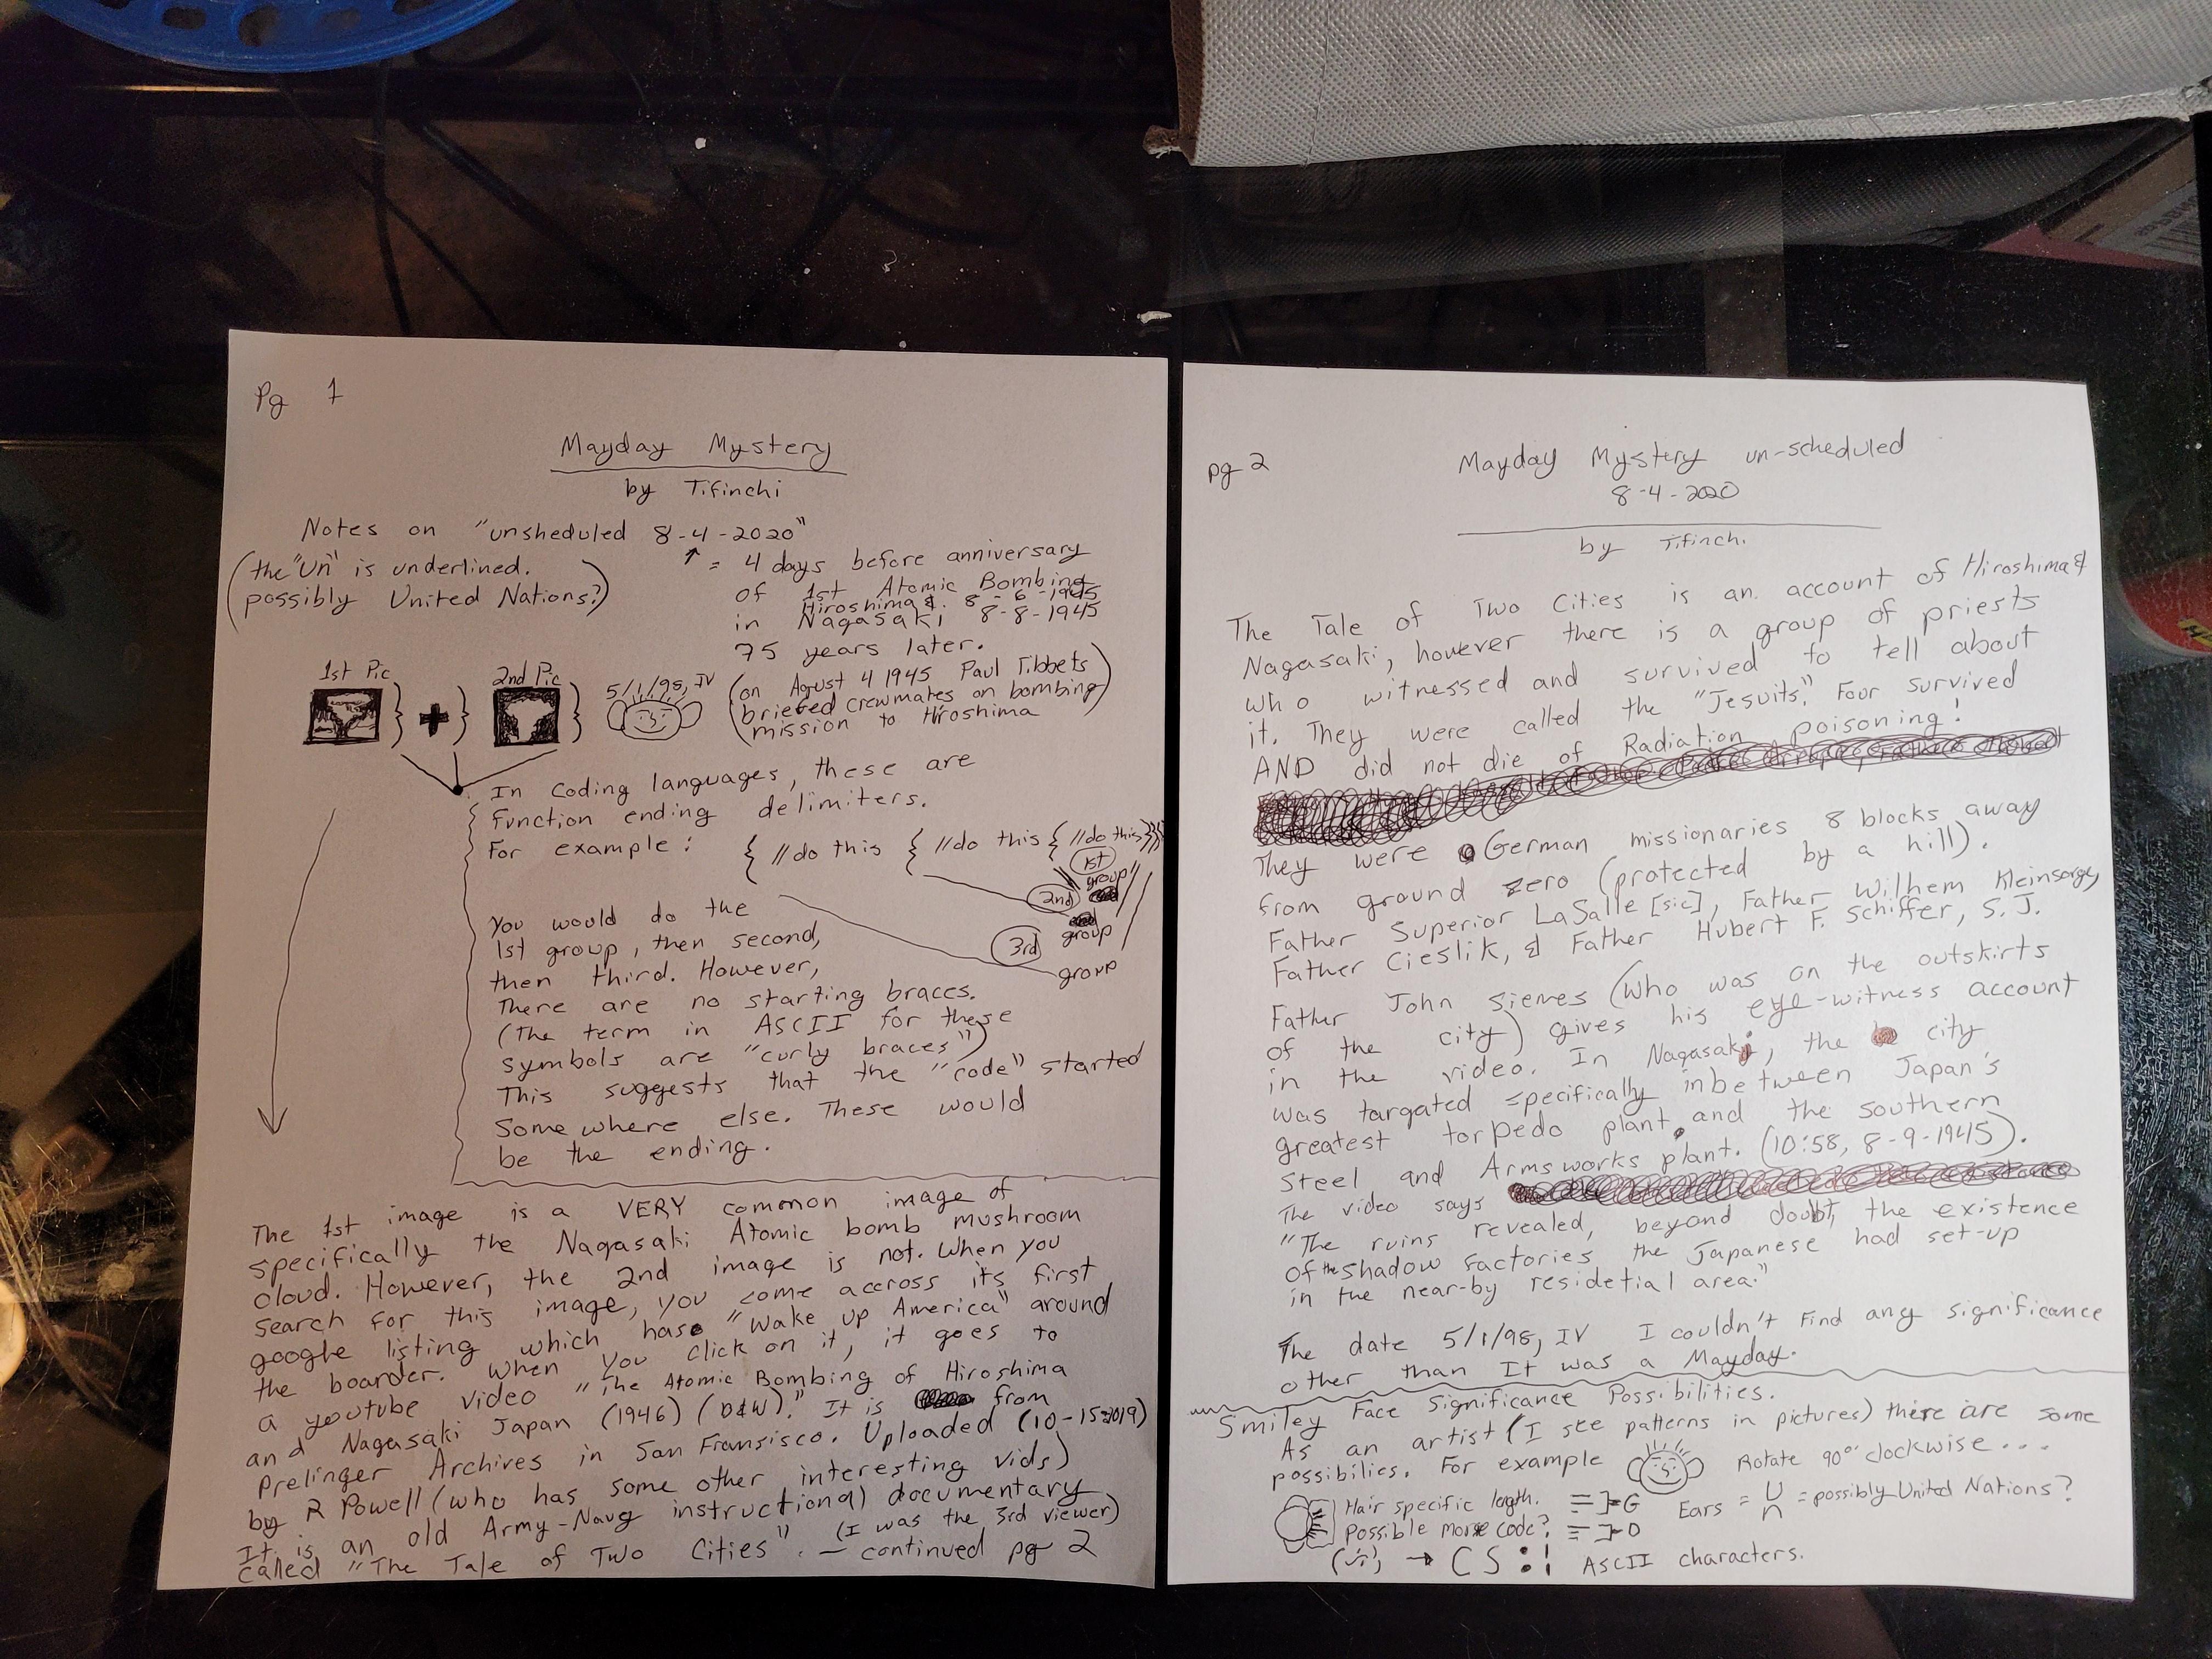 Pg 1
Mayday Mystery
by Tifinchi
Notes on "unsheduled 8-4-2020"
(the "Un" is underlined.
possibly United Nations?)
↑ = 4 days before anniversary
of 1st Atomic Bombing
Hiroshima &. 8-6-1945
in Nagasaki 8-8-1945
75 years later.
1st Pic } + } 2nd Pic } 5/1/98, IV
(on Agust 4 1945 Paul Tibbets
briefed crewmates on bombing
mission to Hiroshima)
In coding languages, these are
function ending delimiters.
For example: { //do this { //do this { //do this }}}
1st group
2nd group
3rd group
You would do the
1st group, then second,
then third. However,
There are no starting braces.
(The term in ASCII for these
symbols are "curly braces")
This suggests that the "code" started
Some where else. These would
be the ending.
The 1st image is a VERY common image of
specifically the Nagasaki Atomic bomb mushroom
cloud. However, the 2nd image is not. When you
search for this image, you come accross its first
google listing which has "Wake up America" around
the boarder. When you click on it, it goes to
a youtube video "The Atomic Bombing of Hiroshima
and Nagasaki Japan (1946) (B&W)." It is from
Prelinger Archives in San Fransisco. Uploaded (10-15-2019)
by R Powell (who has some other interesting vids)
It is an old Army-Navy instructional documentary
called "The Tale of Two Cities". (I was the 3rd viewer)
— continued pg 2
pg 2
Mayday Mystery un-scheduled
8-4-2020
by Tifinch.
The Tale of Two Cities is an account of Hiroshima &
Nagasaki, however there is a group of priests
who witnessed and survived to tell about
it. They were called the "Jesuits." Four survived
AND did not die of Radiation poisoning!
They were German missionaries 8 blocks away
from ground zero (protected by a hill).
Father Superior LaSalle [sic], Father Wilhem Kleinsorge,
Father Cieslik, & Father Hubert F. Schiffer, S.J.
Father John Siemes (who was on the outskirts
of the city) gives his eye-witness account
in the video. In Nagasaki, the city
was targated specifically inbetween Japan's
greatest torpedo plant and the southern
Steel and Arms works plant. (10:58, 8-9-1945).
The video says
"The ruins revealed, beyond doubt, the existence
of the shadow factories the Japanese had set-up
in the near-by residetial area."
The date 5/1/98, IV I couldn't find any significance
other than It was a Mayday.
Smiley Face Significance Possibilities.
As an artist (I see patterns in pictures) there are some
possibilies. For example Rotate 90° clockwise...
Hair specific length. = G Ears = U n = possibly United Nations?
Possible morse code? = O
→ CS : ! ASCII characters.